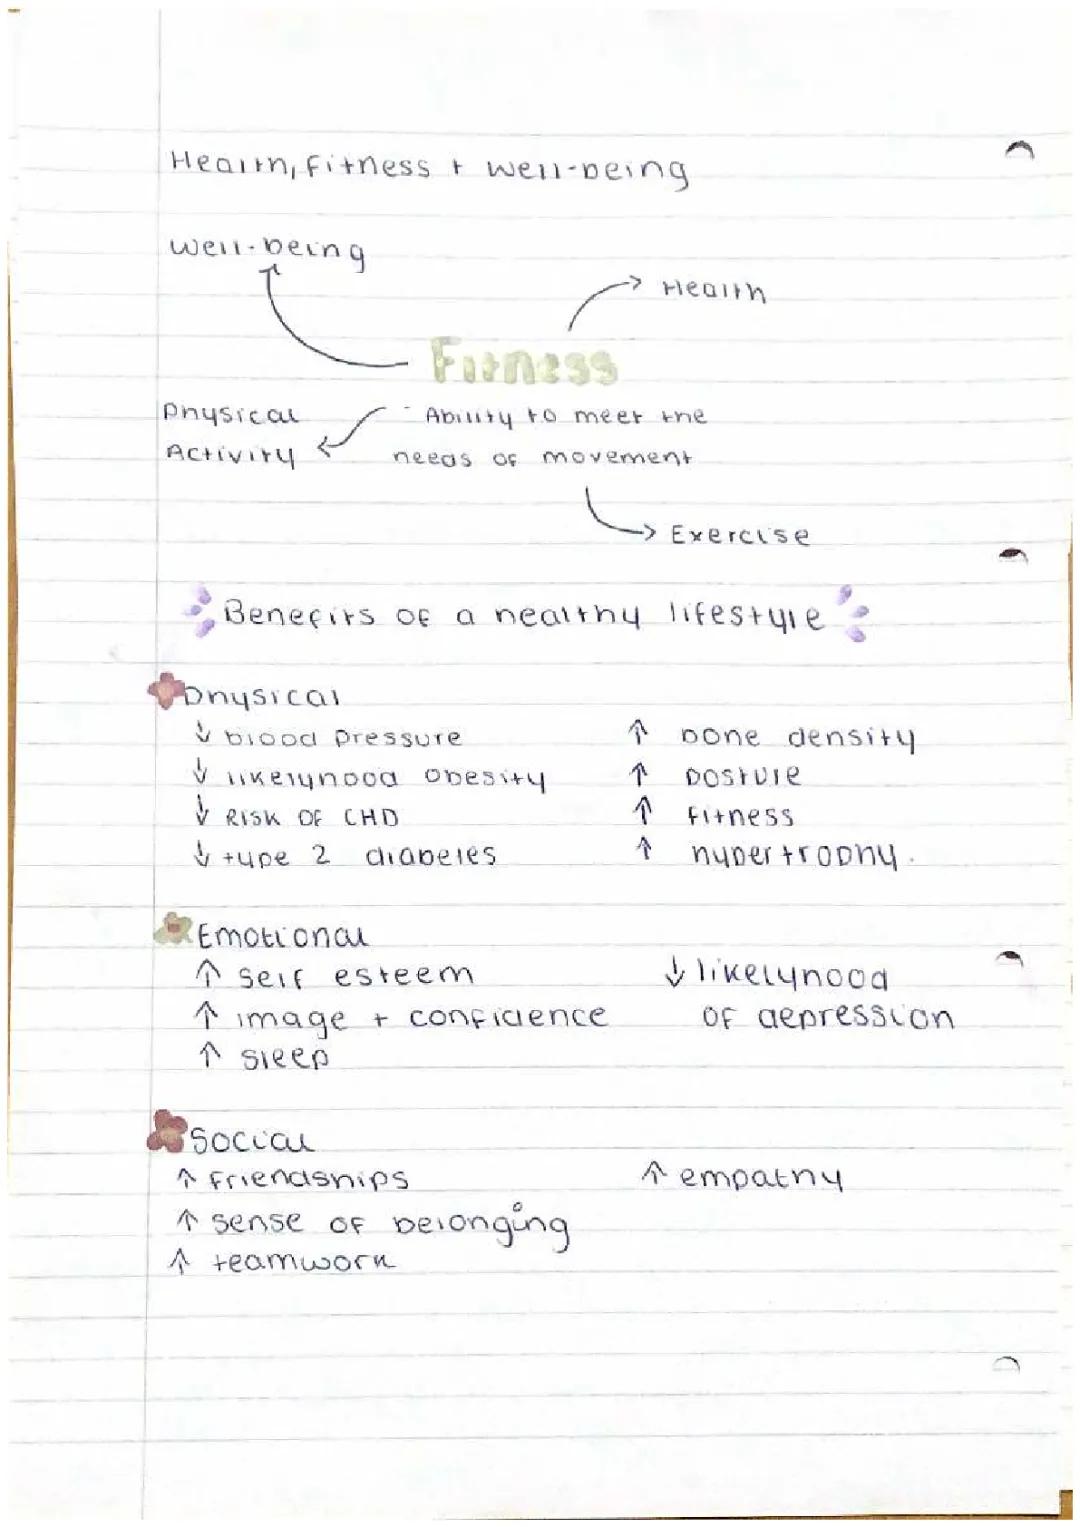 Health, fitness + well-being
well-being
Health
Fitness
Physical
Activity
- Ability to meet the
needs of movement
Exercise
Benefits of a healthy lifestyle
Physical
↓ blood pressure
↑ bone density
↓ likelyhood obesity
↑ posture
↓ RISK OF CHD
↑ fitness
↓ type 2 diabetes
↑ hypertrophy.
Emotional
↑ self esteem
↓ likelyhood
↑ image + confidence
of depression
↑ sleep
Social
↑ friendships
↑ empathy
↑ sense of belonging
↑ teamwork